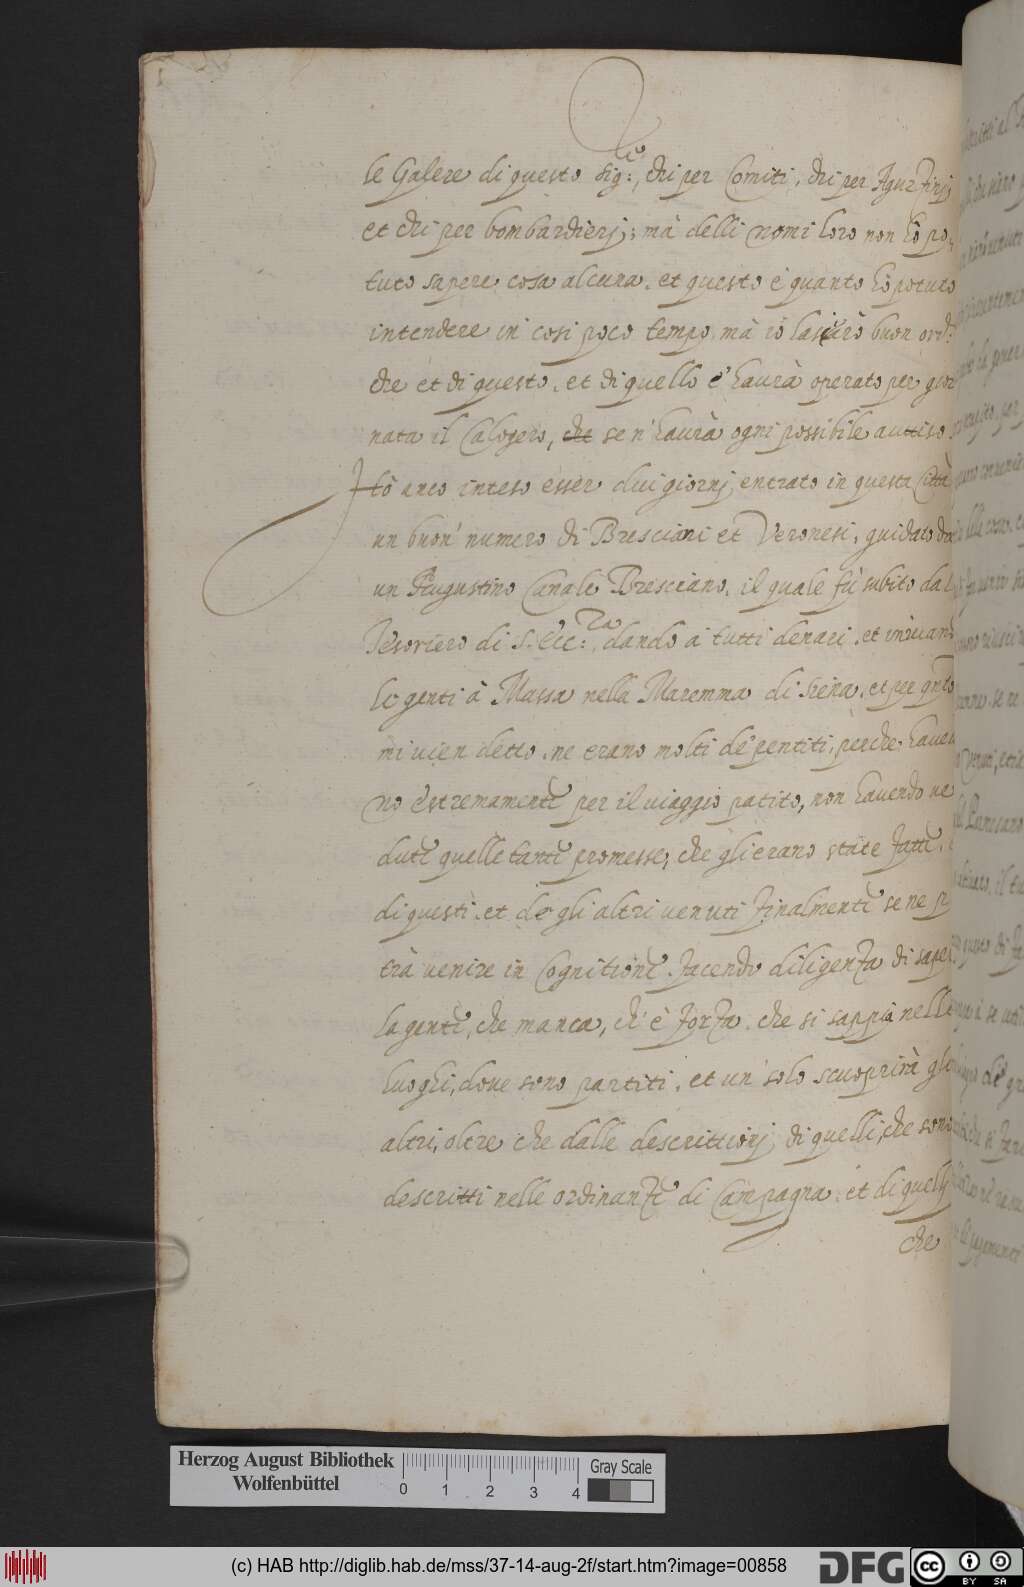 le Galere di questo Sig:re, chi per Comiti, chi per Aguzzinj
et chi per bombardierj; mà delli nomi loro non hò po-
tuto sapere cosa alcuna. et questo è quanto hò potuto
intendere in cosi poco tempo. mà io lasciarò buon ord:
che et di questo, et di quello é haurà operato per gior
nata il Calogero, che se n'haurà ogni possibile auuiso
Hò anco inteso esser dui giornj entrato in questa Città
un buon' numero di Bresciani et Veronesi, guidato da
un Augustino Canale Bresciano, il quale fù subito dal
Tesoriero di S. Ecc:za, dando à tutti denari, et inuiand
le genti à Massa nella Maremma di Siena. et per qnto
mi uien detto. ne erano molti de pentiti, perche haue
no estremamente per il uiaggio patito, non hauendo ue
dute quelle tante promesse, che gli erano state fatte.
di questi, et de gli altri uenuti finalmente se ne p
trà uenire in Cognitione. facendo diligenza di saper
la gente, che manca, ch'è forza. che si sappia nelle
luoghi, doue sono partiti. et un' solo scuoprirà gli
altri, oltre che dalle descrittionj di quelli, che sono
descritti nelle ordinanze di Campagna. et di quellj
che
Herzog August Bibliothek
Wolfenbüttel
0 1 2 3 4
Gray Scale
(c) HAB http://diglib.hab.de/mss/37-14-aug-2f/start.htm?image=00858
DFG
cc
BY SA